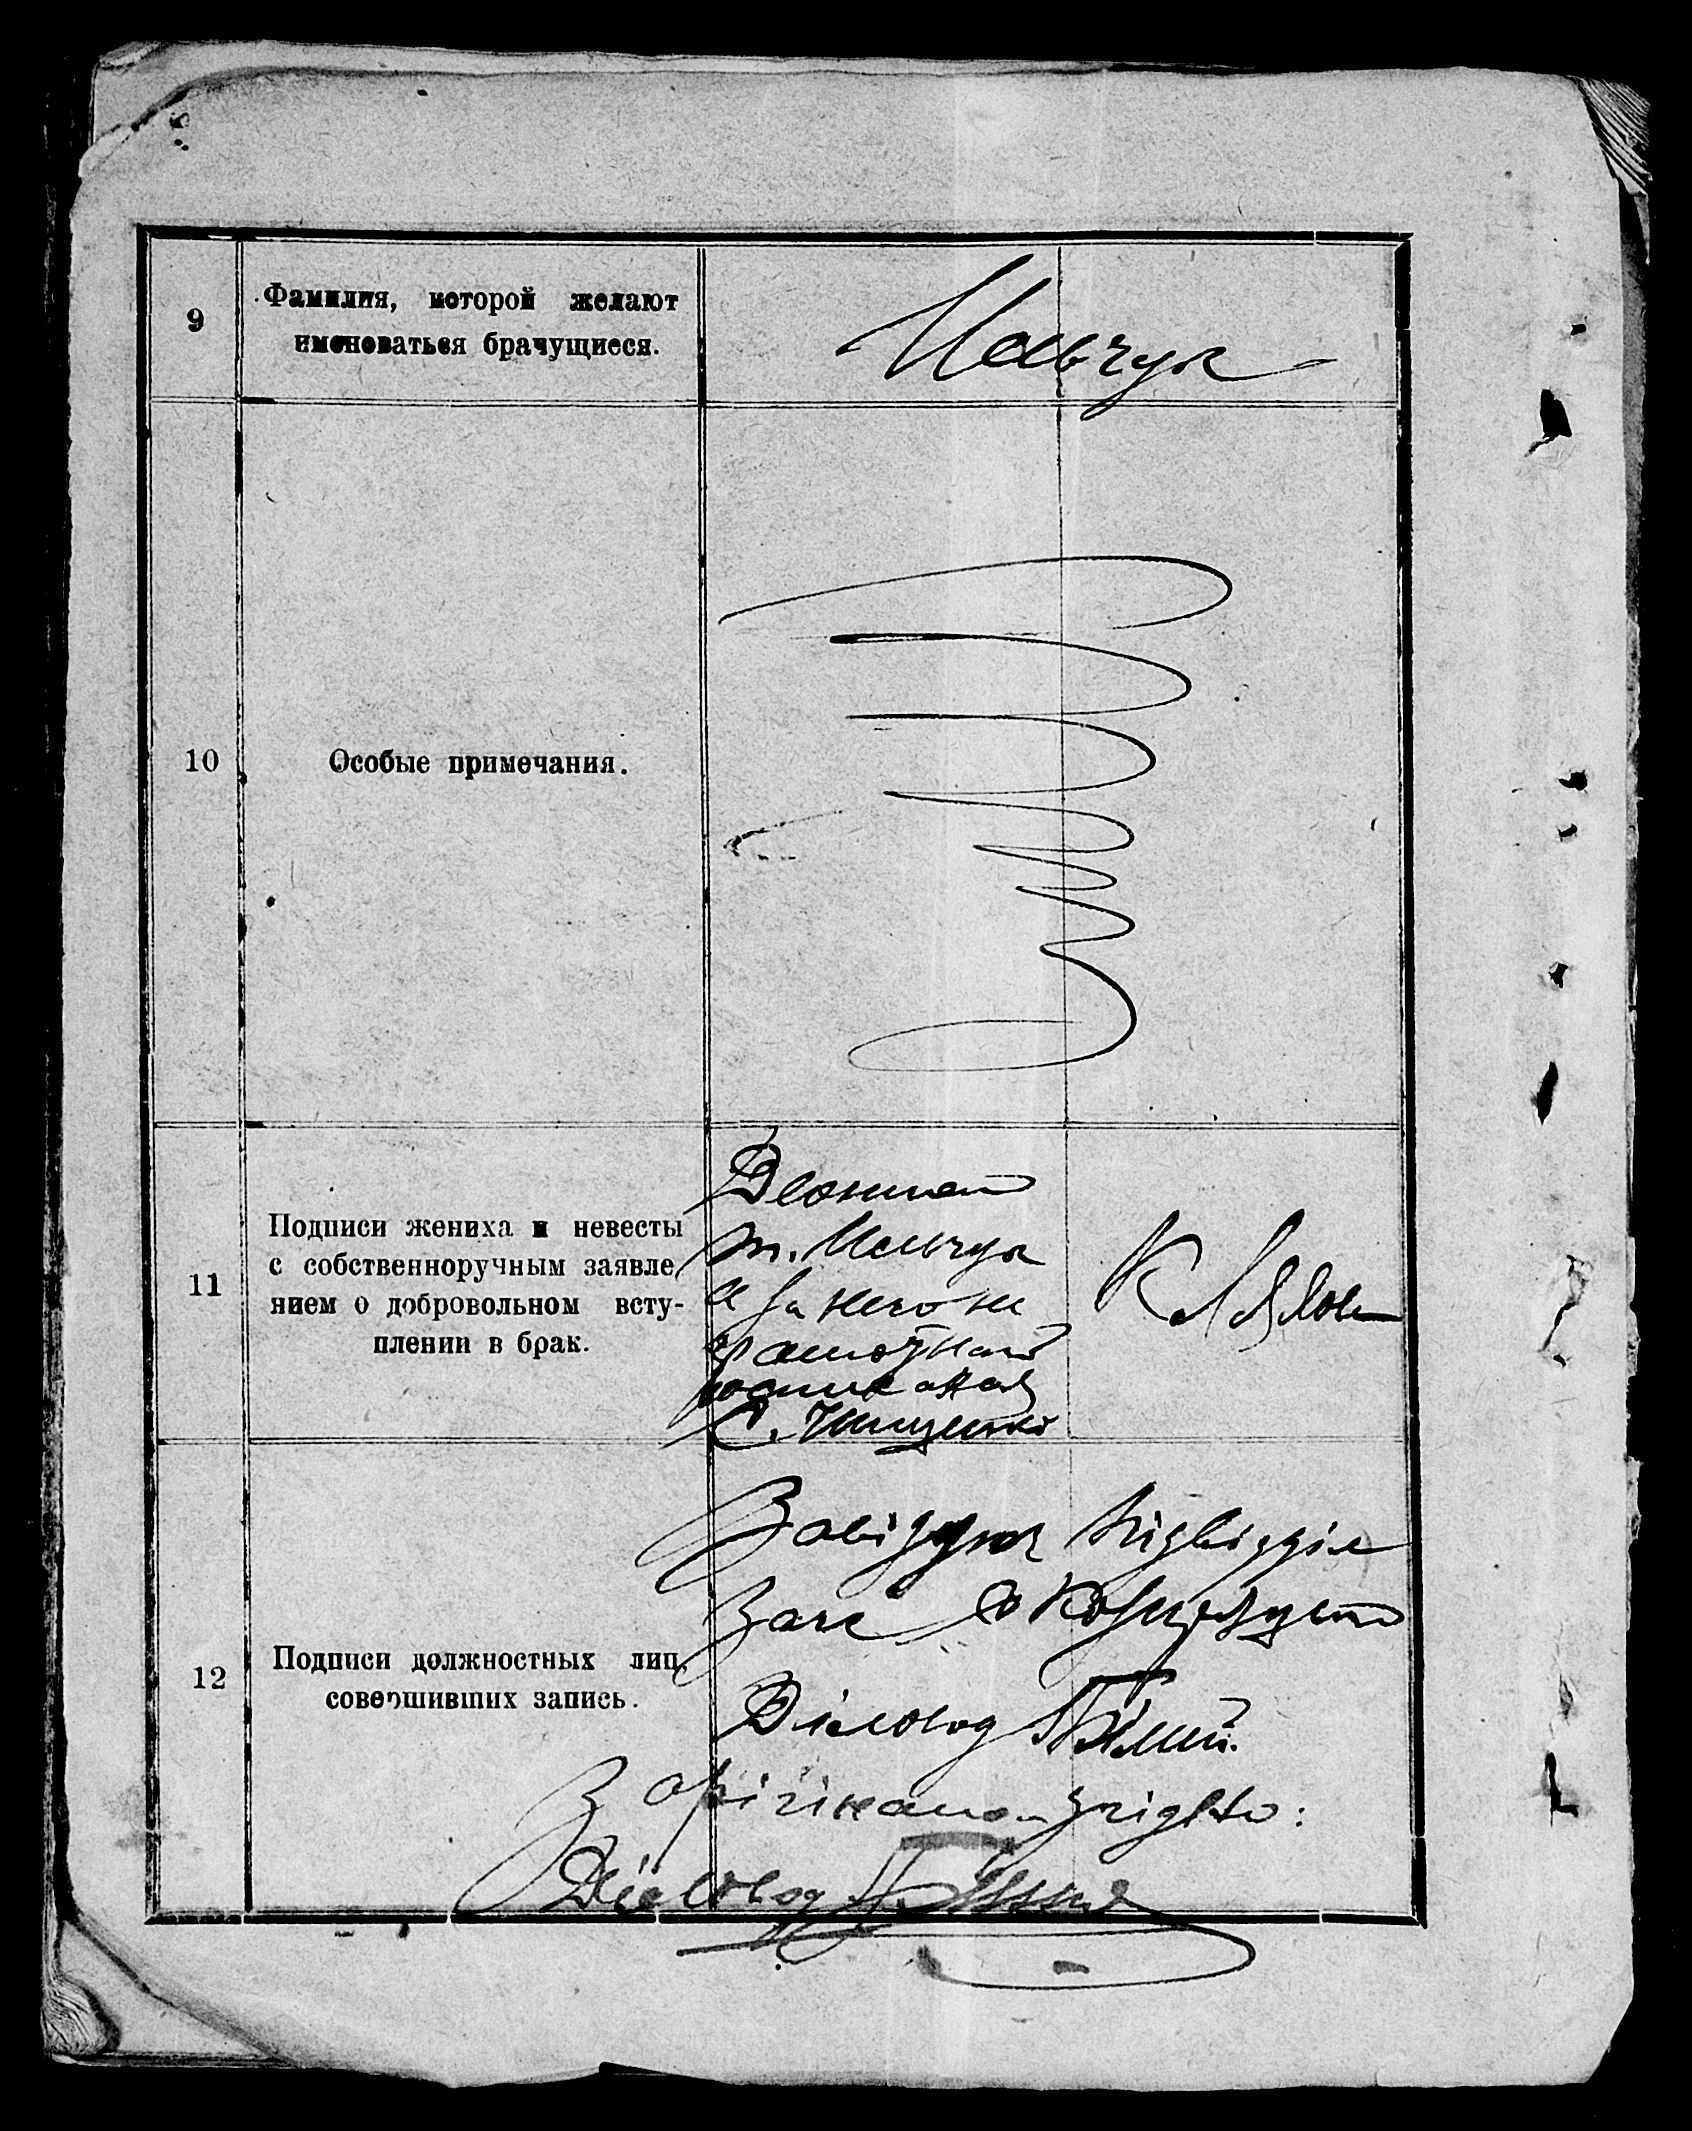 9
Фамилия, которой желают
именоваться брачущиеся.
Мельчук
10
Особые примечания.
11
Подписи жениха и невесты
с собственноручным заявле-
нием о добровольном всту-
плении в брак.
Мельчук
а за него не
грамотный
12
Подписи должностных лиц,
совершивших запись.
Завідуюч Підвідділ
Загс
Діловод
З оригіналом згідно:
Діловод